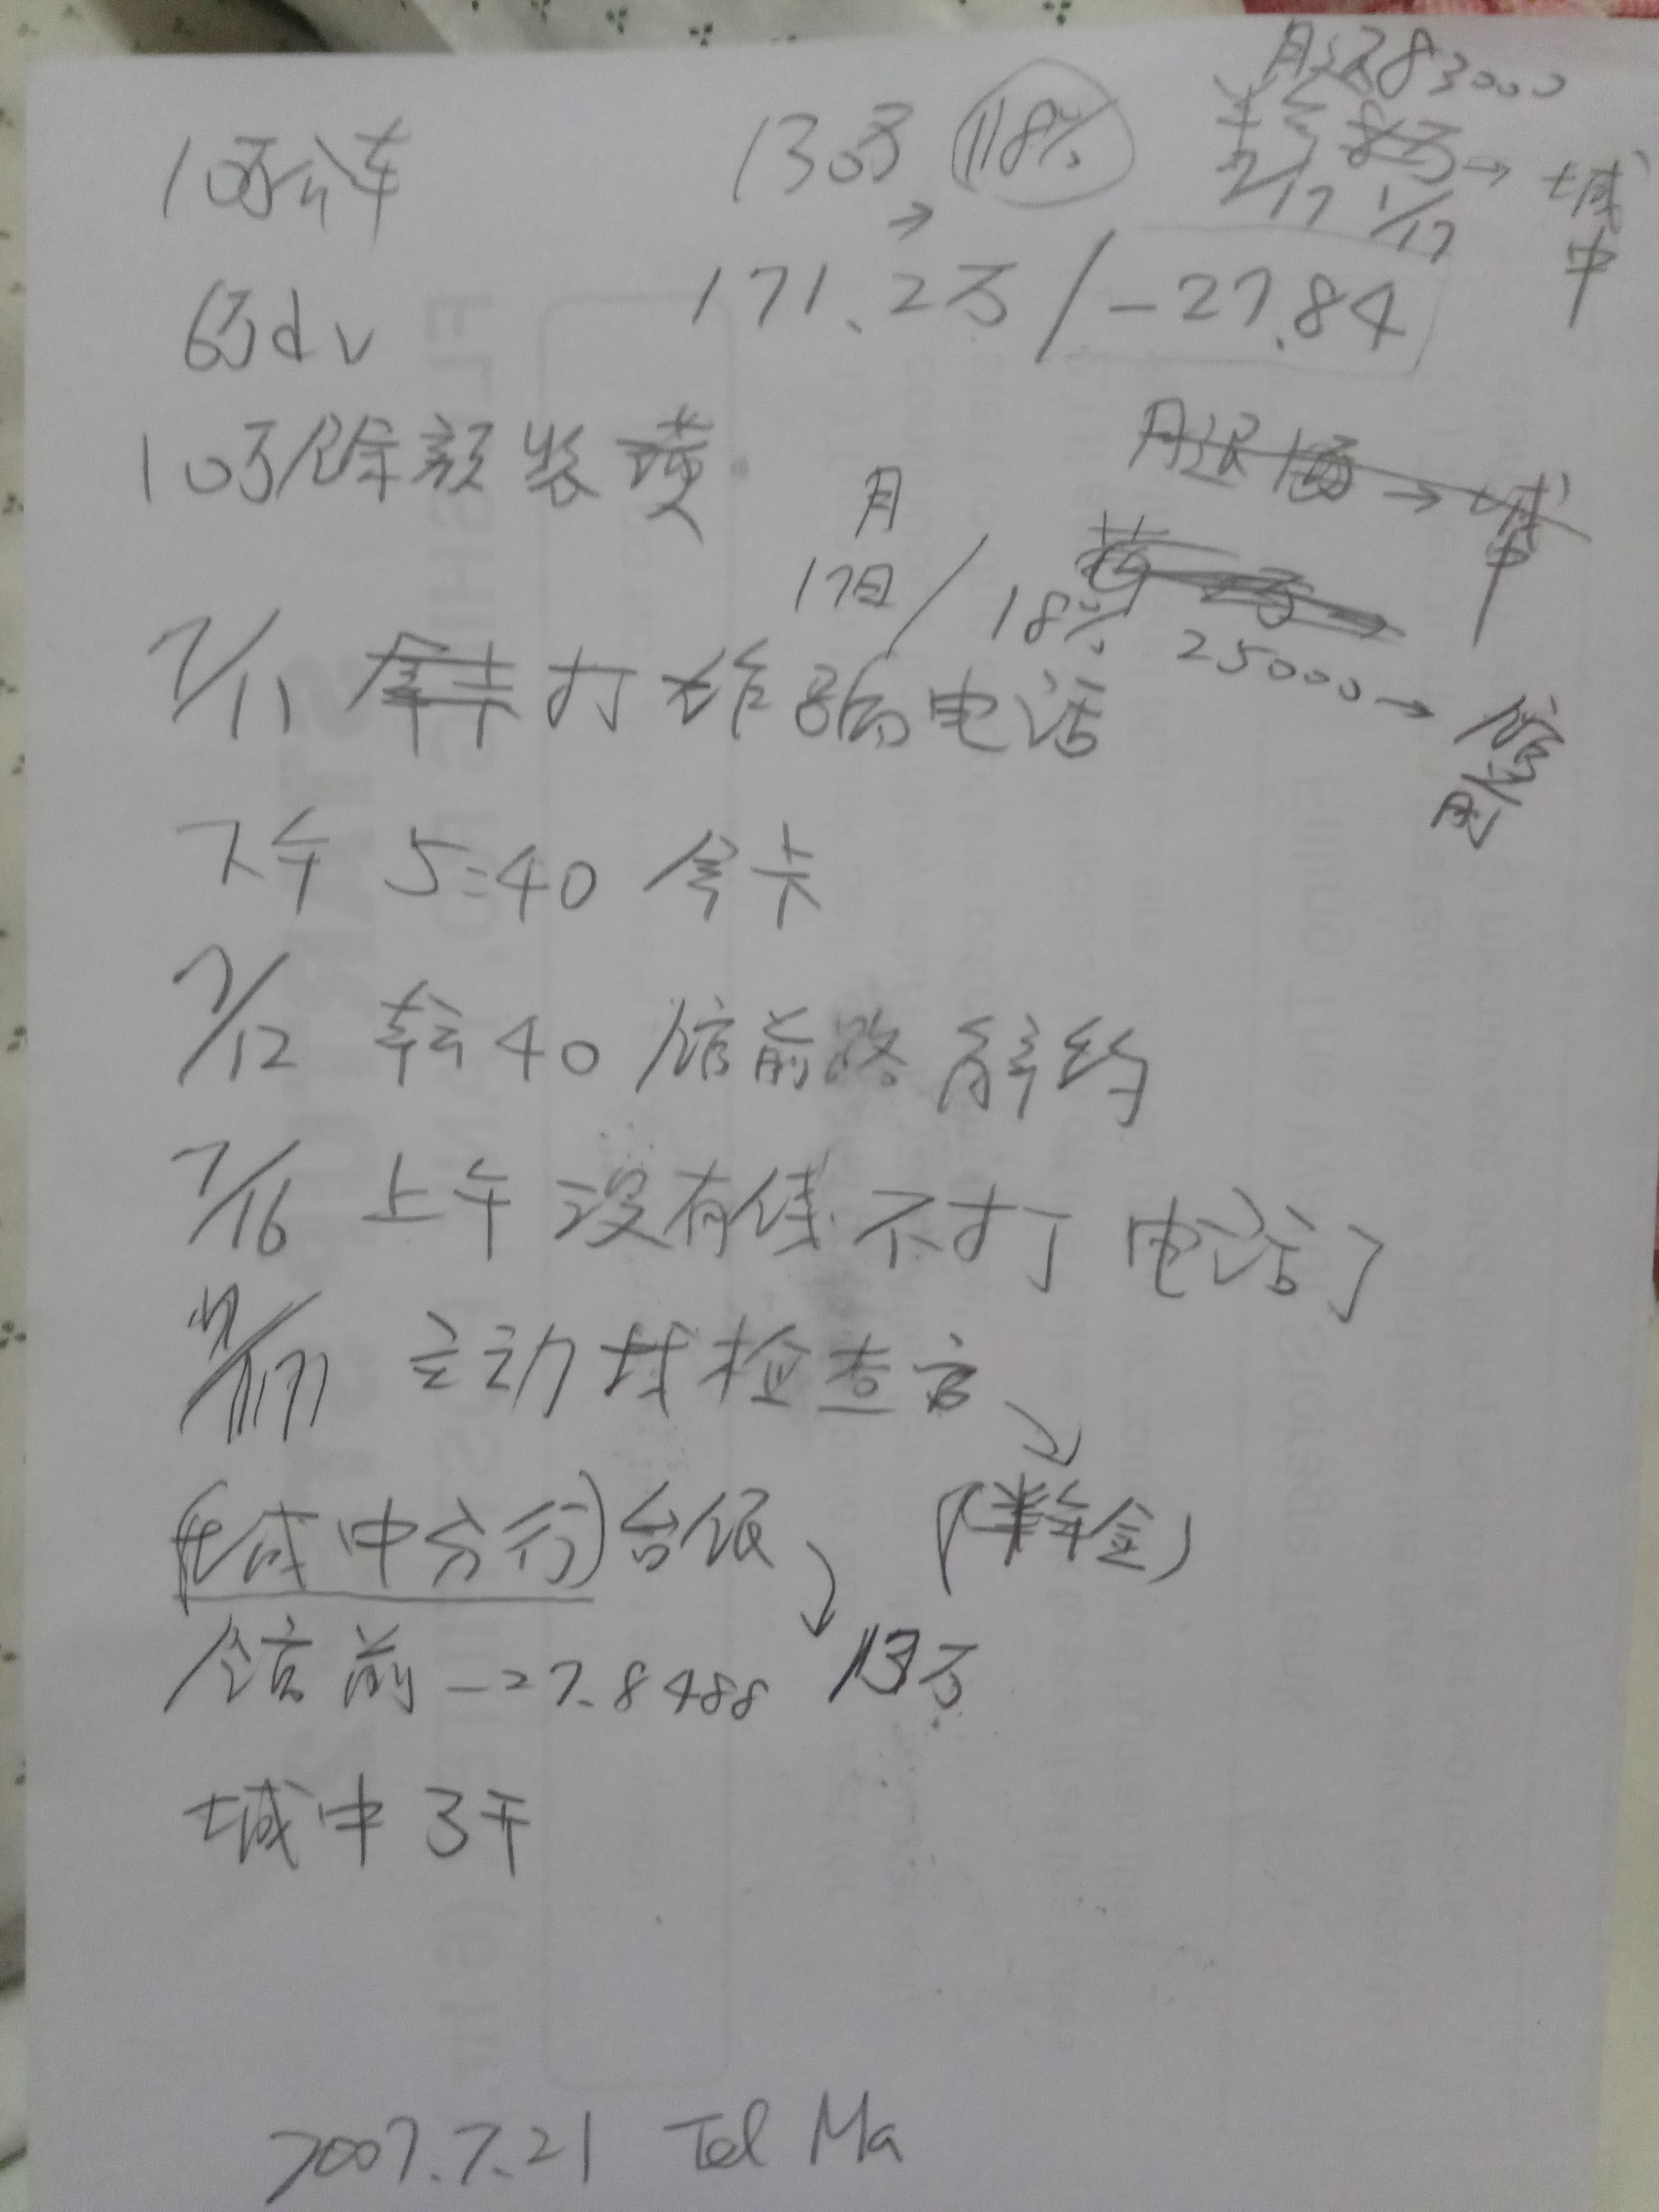 月退83000
10万公车 130万 118%
半年 8万 → 城中
7/17 1/17
6万dv 171.2万/-27.84
10万 余额 装潢
月退 1万 → 城中
月
17日/18%
25000 → 馆前
7/11 打给 电话
下午 5:40 拿卡
7/12 转40 馆前路 解约
7/16 上午 没有钱 不打 电话了
7/17 主动找检查官
(城中分行)台银 (半年金)
馆前 -27.8488 13万
城中 3千
2007.7.21 Tel Ma